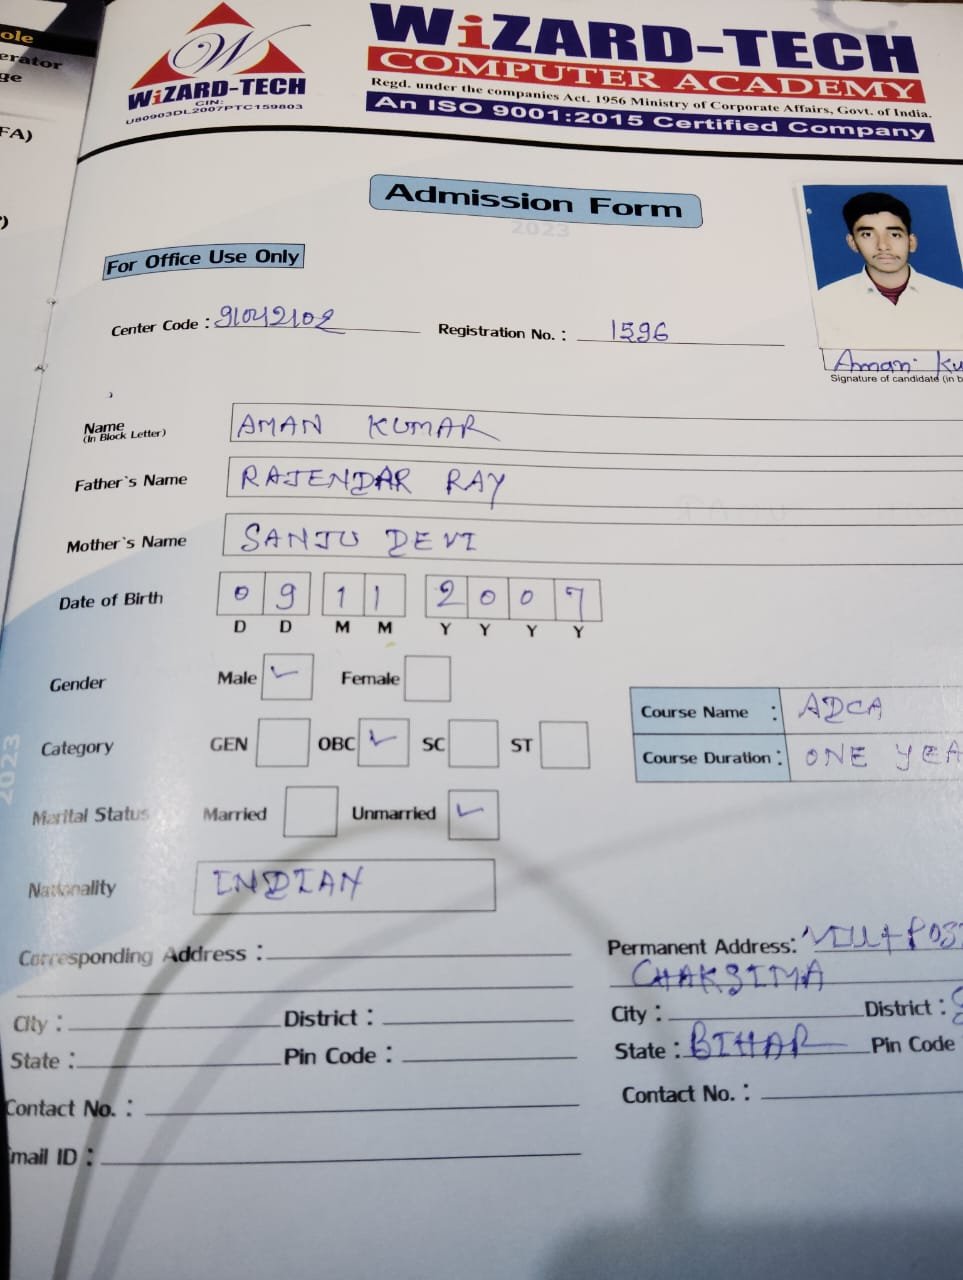 ole
erator
ge
FA)
WiZARD-TECH
CIN:
U80903DL2007PTC159803
WiZARD-TECH
COMPUTER ACADEMY
Regd. under the companies Act. 1956 Ministry of Corporate Affairs, Govt. of India.
An ISO 9001:2015 Certified Company
Admission Form
2023
For Office Use Only
Center Code : 91042102 Registration No. : 1596
Aman Ku
Signature of candidate (in b
Name AMAN KUMAR
(In Block Letter)
Father`s Name RAJENDAR RAY
Mother`s Name SANJU DEVI
Date of Birth 0 9 1 1 2 0 0 7
D D M M Y Y Y Y
Gender Male ✓ Female
Course Name : ADCA
Category GEN OBC ✓ SC ST
Course Duration : ONE YEA
2023
Marital Status Married Unmarried ✓
Nationality INDIAN
Corresponding Address : Permanent Address: VILL+POS
CHAKSIMA
City : District : City : District :
State : Pin Code : State : BIHAR Pin Code
Contact No. : Contact No. :
Email ID :